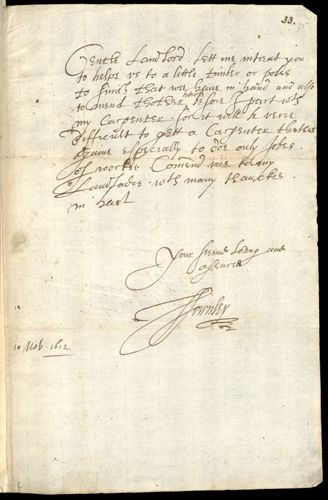 33.
Gentle Landlord. Lett me intreat you
to helpe vs to a little timber or poles
to finish that wee haue in hand and also
to mend thother before I part wth
my Carpenter. for it will be verie
difficult to gett a Carpenter
againe especially to doe only
of worke. Comend me to my
Landladie. wth many thanckes
in hast
Your frend loving and
assured
10 Nob. 1612